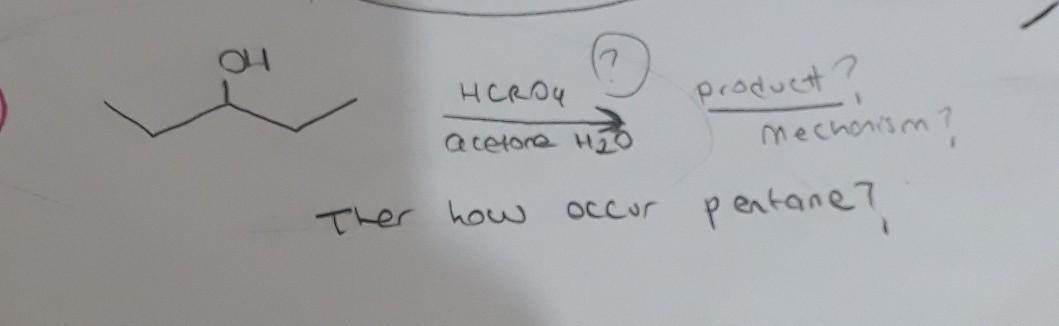 OH
?
HCRO4
acetone H2O
product?
mechanism?
Ther how occur pentane?